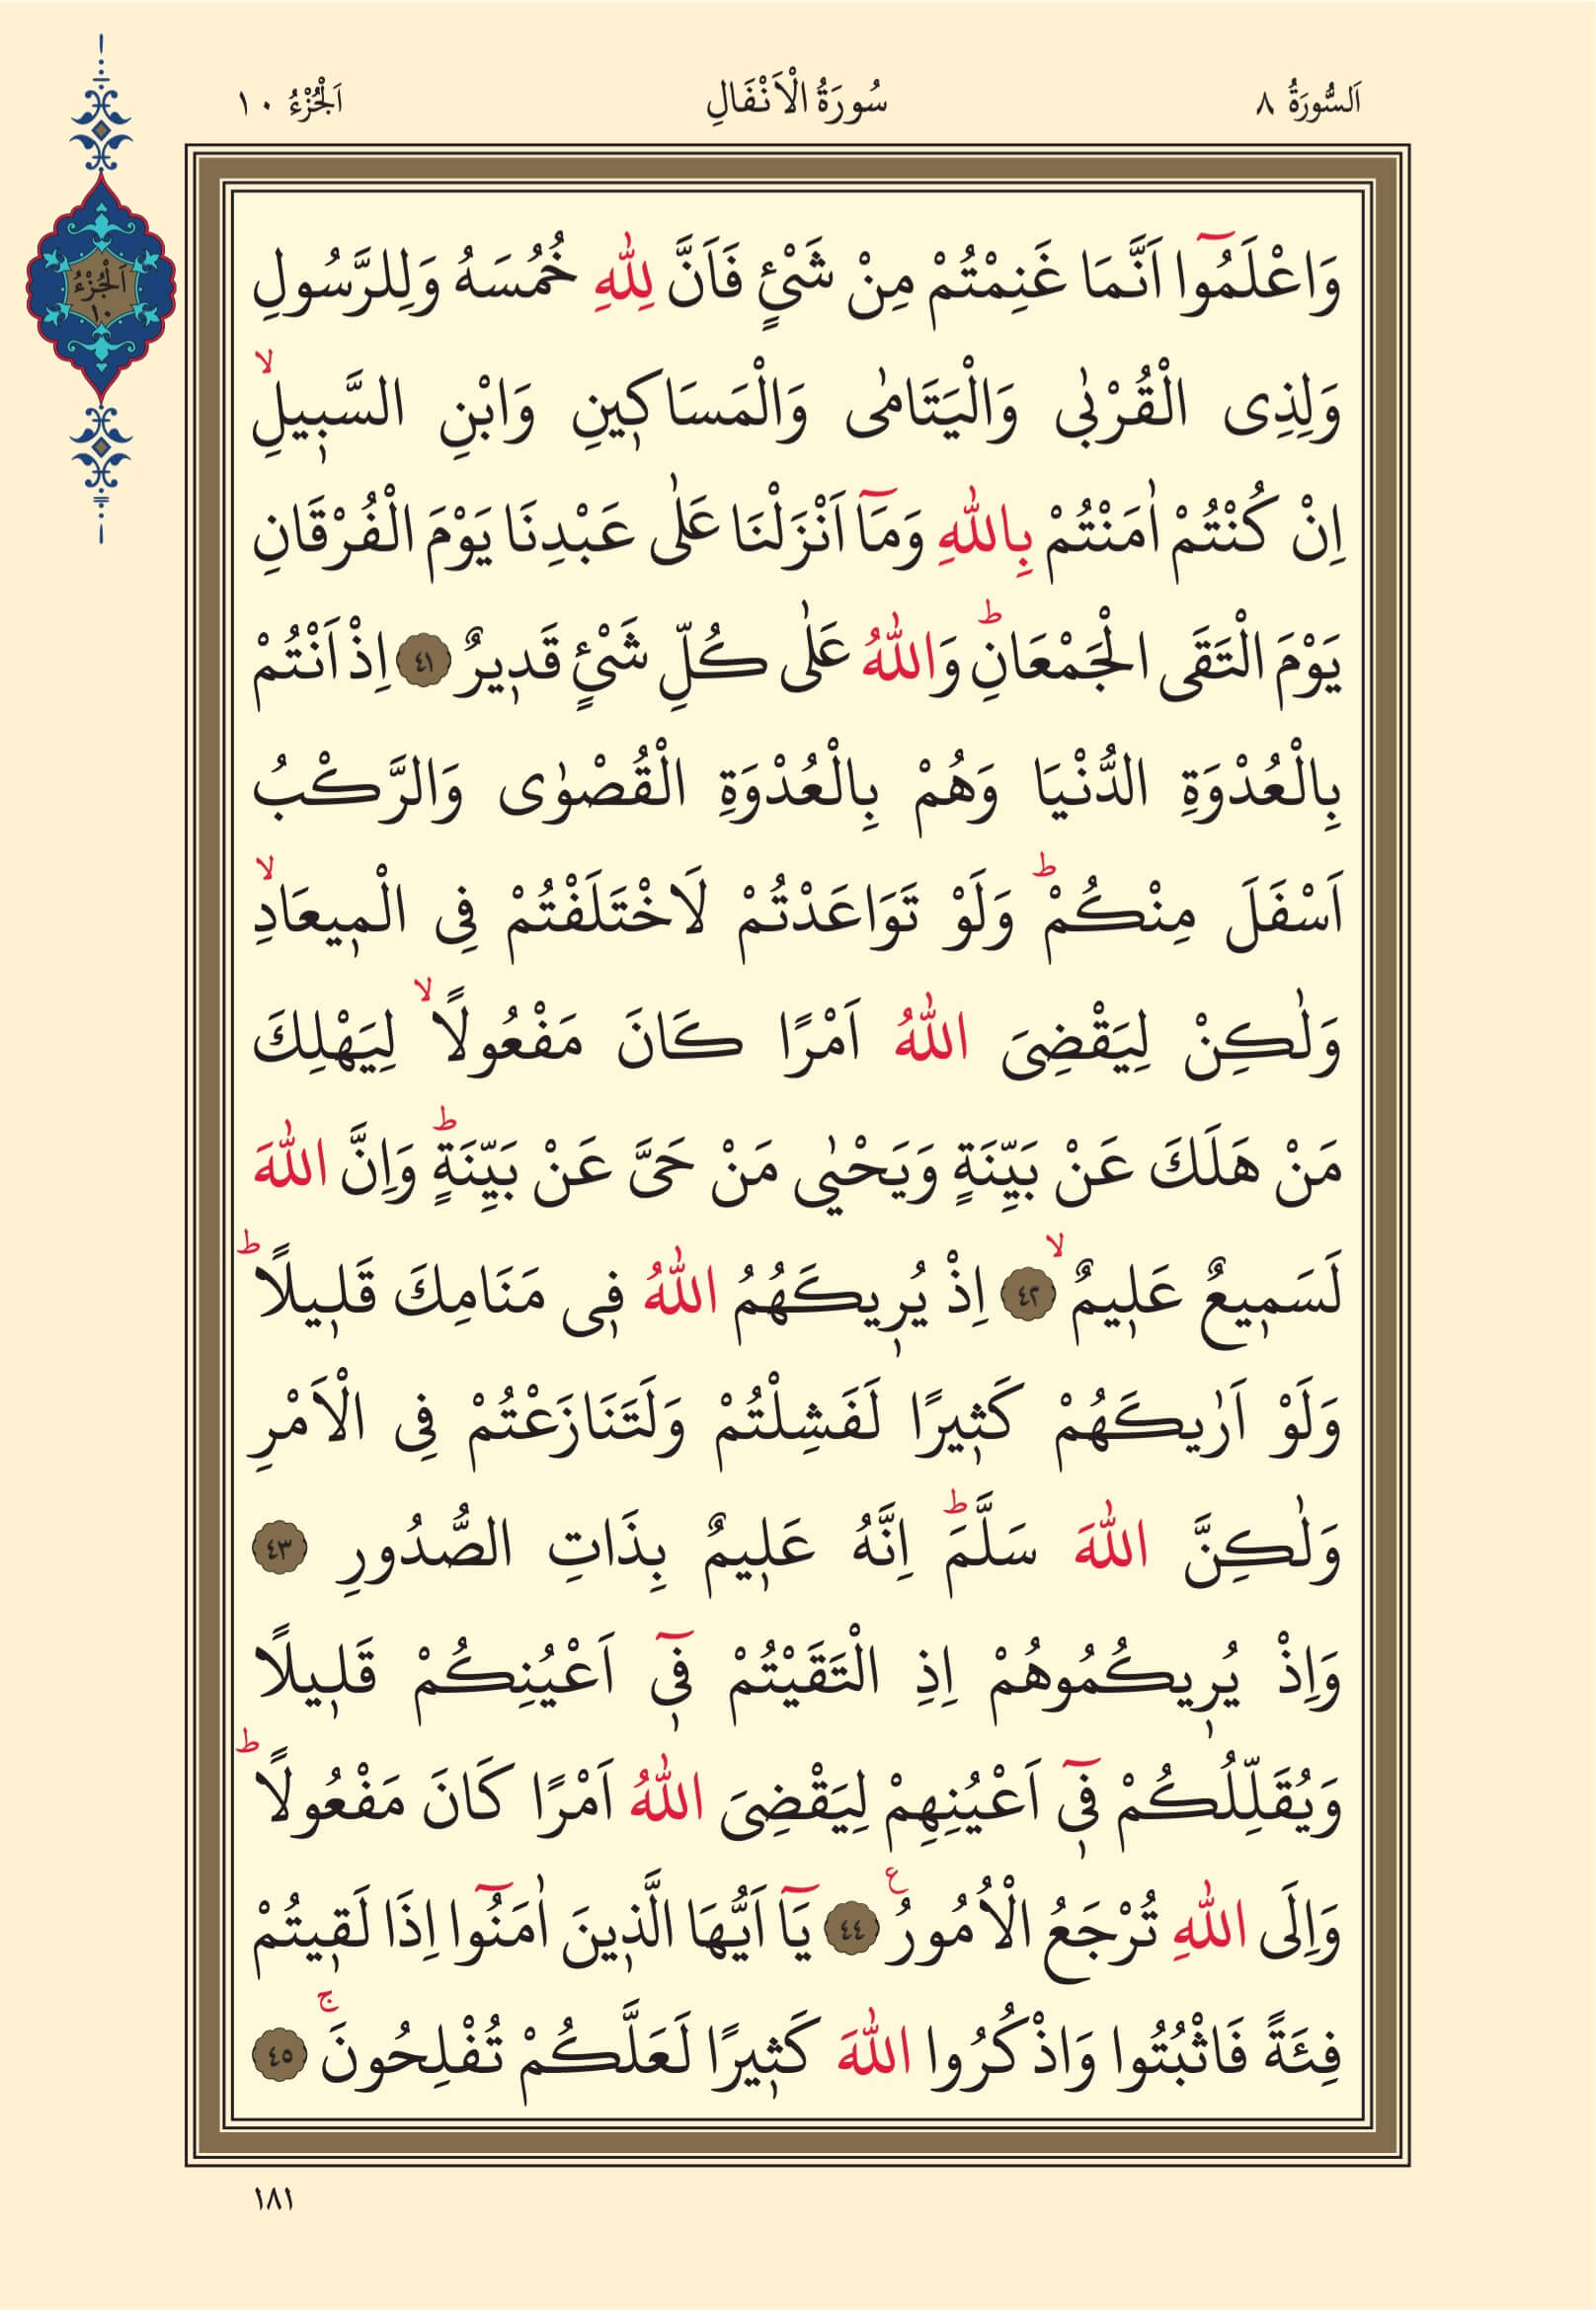 اَلسُّورَةُ ٨ سُورَةُ الْاَنْفَالِ اَلْجُزْءُ ١٠
اَلْجُزْءُ
١٠
وَاعْلَمُٓوا اَنَّمَا غَنِمْتُمْ مِنْ شَيْءٍ فَاَنَّ لِلّٰهِ خُمُسَهُ وَلِلرَّسُولِ
وَلِذِى الْقُرْبٰى وَالْيَتَامٰى وَالْمَسَاك۪ينِ وَابْنِ السَّب۪يلِۙ
اِنْ كُنْتُمْ اٰمَنْتُمْ بِاللّٰهِ وَمَٓا اَنْزَلْنَا عَلٰى عَبْدِنَا يَوْمَ الْفُرْقَانِ
يَوْمَ الْتَقَى الْجَمْعَانِۜ وَاللّٰهُ عَلٰى كُلِّ شَيْءٍ قَد۪يرٌ ﴿٤١﴾ اِذْ اَنْتُمْ
بِالْعُدْوَةِ الدُّنْيَا وَهُمْ بِالْعُدْوَةِ الْقُصْوٰى وَالرَّكْبُ
اَسْفَلَ مِنْكُمْۜ وَلَوْ تَوَاعَدْتُمْ لَاخْتَلَفْتُمْ فِى الْم۪يعَادِۙ
وَلٰكِنْ لِيَقْضِىَ اللّٰهُ اَمْرًا كَانَ مَفْعُولًاۙ لِيَهْلِكَ
مَنْ هَلَكَ عَنْ بَيِّنَةٍ وَيَحْيٰى مَنْ حَىَّ عَنْ بَيِّنَةٍۜ وَاِنَّ اللّٰهَ
لَسَم۪يعٌ عَل۪يمٌۙ ﴿٤٢﴾ اِذْ يُر۪يكَهُمُ اللّٰهُ ف۪ى مَنَامِكَ قَل۪يلًاۜ
وَلَوْ اَرٰيكَهُمْ كَث۪يرًا لَفَشِلْتُمْ وَلَتَنَازَعْتُمْ فِى الْاَمْرِ
وَلٰكِنَّ اللّٰهَ سَلَّمَۜ اِنَّهُ عَل۪يمٌ بِذَاتِ الصُّدُورِ ﴿٤٣﴾
وَاِذْ يُر۪يكُمُوهُمْ اِذِ الْتَقَيْتُمْ ف۪ٓى اَعْيُنِكُمْ قَل۪يلًا
وَيُقَلِّلُكُمْ ف۪ٓى اَعْيُنِهِمْ لِيَقْضِىَ اللّٰهُ اَمْرًا كَانَ مَفْعُولًاۜ
وَاِلَى اللّٰهِ تُرْجَعُ الْاُمُورُ۟ ﴿٤٤﴾ يَٓا اَيُّهَا الَّذ۪ينَ اٰمَنُٓوا اِذَا لَق۪يتُمْ
فِئَةً فَاثْبُتُوا وَاذْكُرُوا اللّٰهَ كَث۪يرًا لَعَلَّكُمْ تُفْلِحُونَۚ ﴿٤٥﴾
١٨١